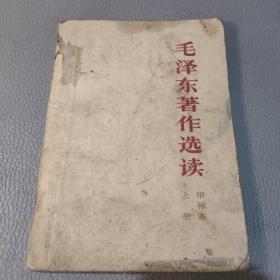 毛泽东著作选读
甲种本
上册